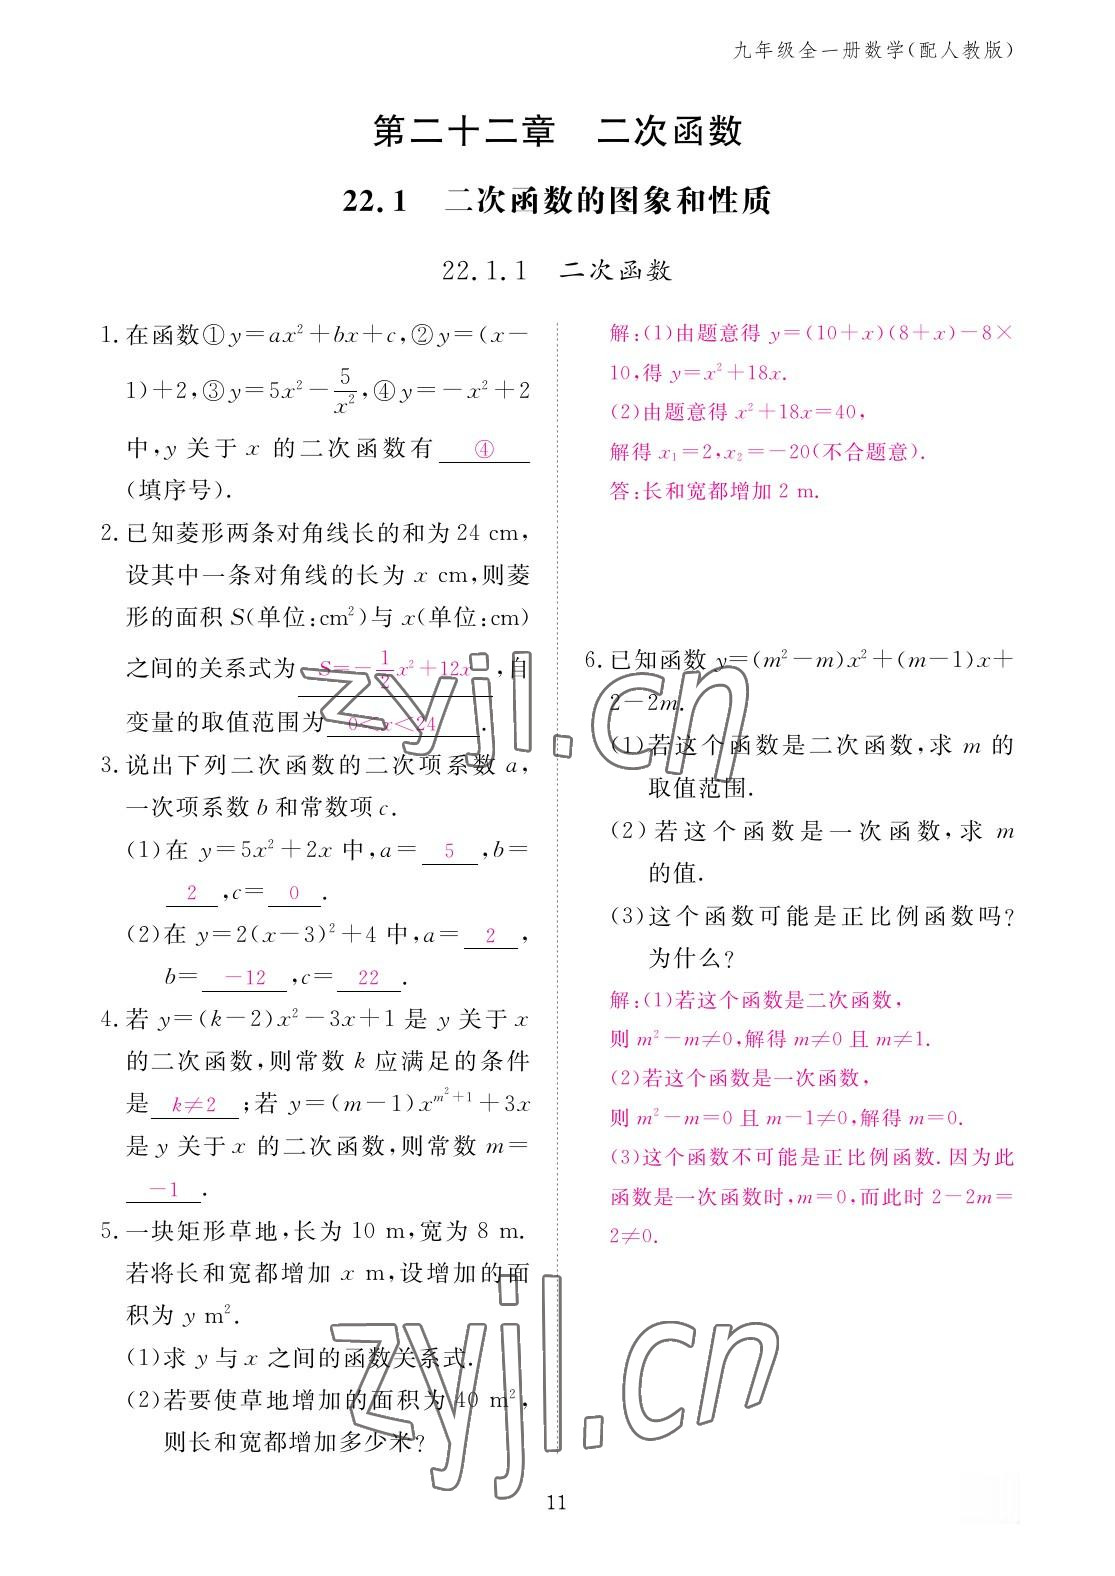 九年级全一册数学(配人教版)
第二十二章 二次函数
22.1 二次函数的图象和性质
22.1.1 二次函数
1. 在函数①y=ax²+bx+c,②y=(x-
1)+2,③y=5x²-5/x²,④y=-x²+2
中,y 关于 x 的二次函数有 ④
(填序号).
2. 已知菱形两条对角线长的和为 24 cm,
设其中一条对角线的长为 x cm,则菱
形的面积 S(单位:cm²)与 x(单位:cm)
之间的关系式为 S=-1/2x²+12x ,自
变量的取值范围为 0<x<24 .
3. 说出下列二次函数的二次项系数 a,
一次项系数 b 和常数项 c.
(1)在 y=5x²+2x 中,a= 5 ,b=
2 ,c= 0 .
(2)在 y=2(x-3)²+4 中,a= 2 ,
b= -12 ,c= 22 .
4. 若 y=(k-2)x²-3x+1 是 y 关于 x
的二次函数,则常数 k 应满足的条件
是 k≠2 ;若 y=(m-1)x^{m²+1}+3x
是 y 关于 x 的二次函数,则常数 m=
-1 .
5. 一块矩形草地,长为 10 m,宽为 8 m.
若将长和宽都增加 x m,设增加的面
积为 y m².
(1)求 y 与 x 之间的函数关系式.
(2)若要使草地增加的面积为 40 m²,
则长和宽都增加多少米?
解:(1)由题意得 y=(10+x)(8+x)-8×
10,得 y=x²+18x.
(2)由题意得 x²+18x=40,
解得 x₁=2,x₂=-20(不合题意).
答:长和宽都增加 2 m.
6. 已知函数 y=(m²-m)x²+(m-1)x+
2-2m.
(1)若这个函数是二次函数,求 m 的
取值范围.
(2)若这个函数是一次函数,求 m
的值.
(3)这个函数可能是正比例函数吗?
为什么?
解:(1)若这个函数是二次函数,
则 m²-m≠0,解得 m≠0 且 m≠1.
(2)若这个函数是一次函数,
则 m²-m=0 且 m-1≠0,解得 m=0.
(3)这个函数不可能是正比例函数. 因为此
函数是一次函数时,m=0,而此时 2-2m=
2≠0.
zyjl.cn
zyjl.cn
11